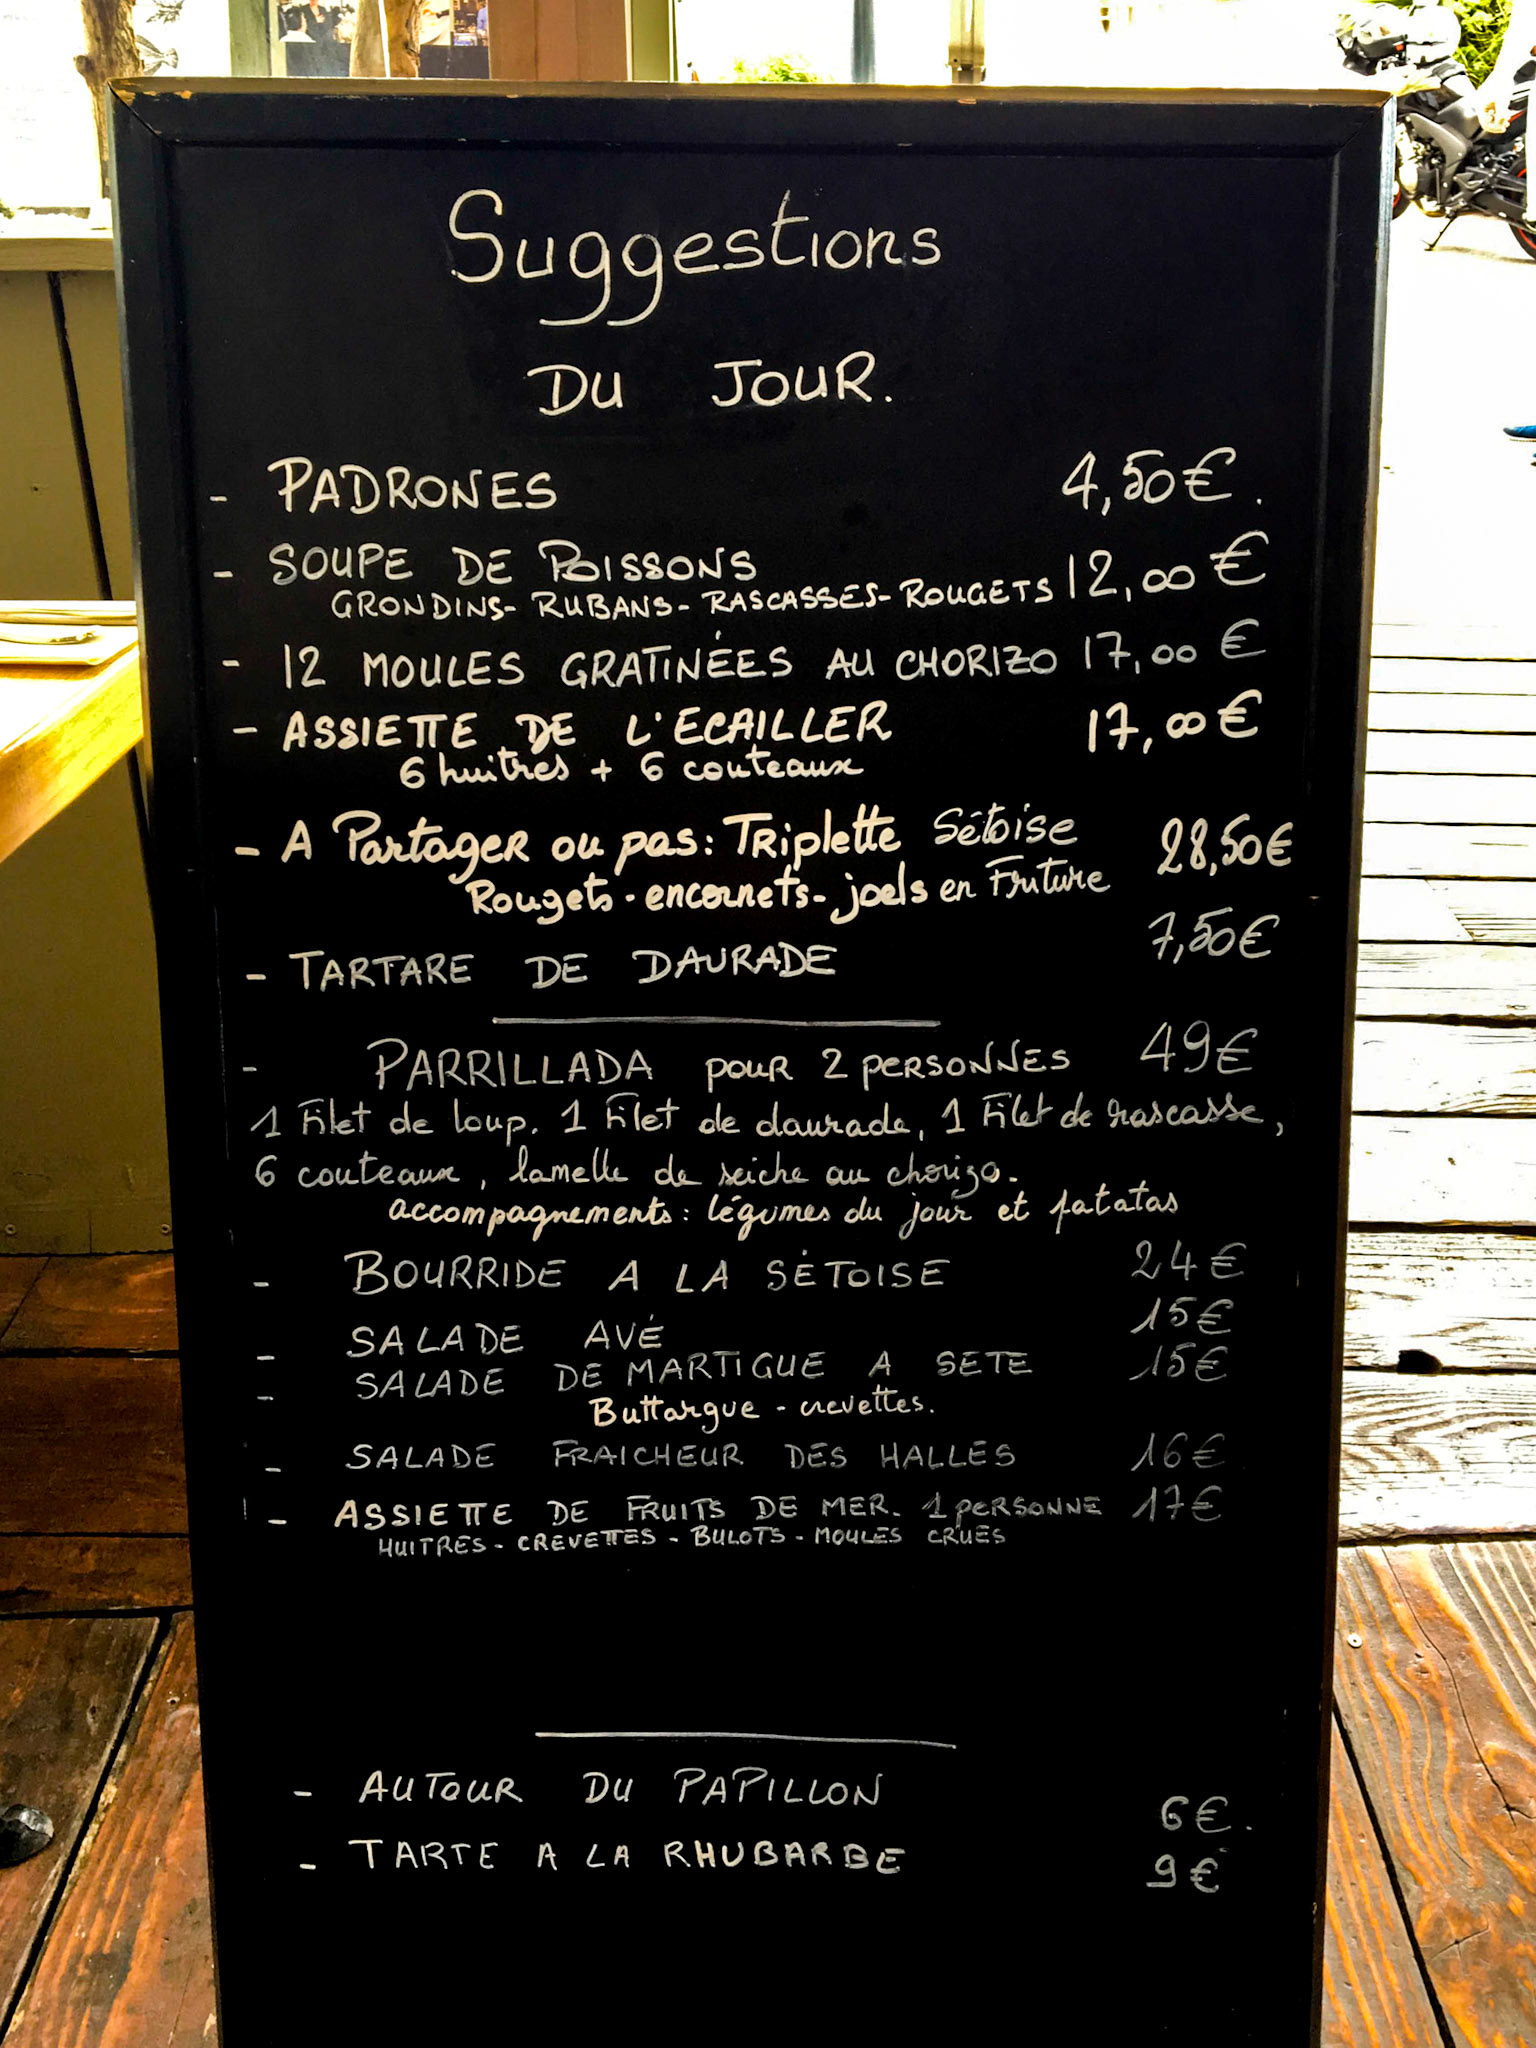 Suggestions
DU JOUR.
- PADRONES 4,50€.
- SOUPE DE POISSONS 12,00€
GRONDINS- RUBANS- RASCASSES- ROUGETS
- 12 MOULES GRATINÉES AU CHORIZO 17,00 €
- ASSIETTE DE L'ECAILLER 17,00€
6 huitres + 6 couteaux
- A Partager ou pas: Triplette Sétoise 28,50€
Rougets - encornets - joels en Friture
- TARTARE DE DAURADE 7,50€
- PARRILLADA pour 2 personnes 49€
1 Filet de loup. 1 Filet de daurade, 1 Filet de rascasse,
6 couteaux, lamelle de seiche au chorizo.
accompagnements: légumes du jour et patatas
- BOURRIDE A LA SÉTOISE 24€
- SALADE AVÉ 15€
- SALADE DE MARTIGUE A SETE 15€
Buttargue - crevettes.
- SALADE FRAICHEUR DES HALLES 16€
- ASSIETTE DE FRUITS DE MER. 1 personne 17€
HUITRES - CREVETTES - BULOTS - MOULES CRUES
- AUTOUR DU PAPILLON 6€.
- TARTE A LA RHUBARBE 9€